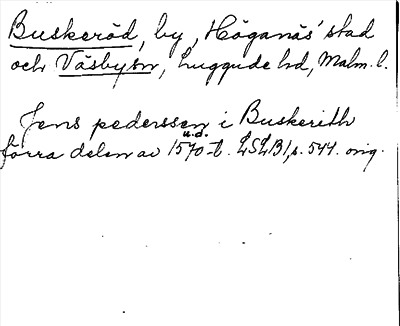 Buskeröd, by, Höganäs' stad
och Väsby sn, Luggude hd, Malm. l.
Jens pederssen i Buskerith
u.d.
förra delen av 1570-t. LSLB1, s. 544. orig.